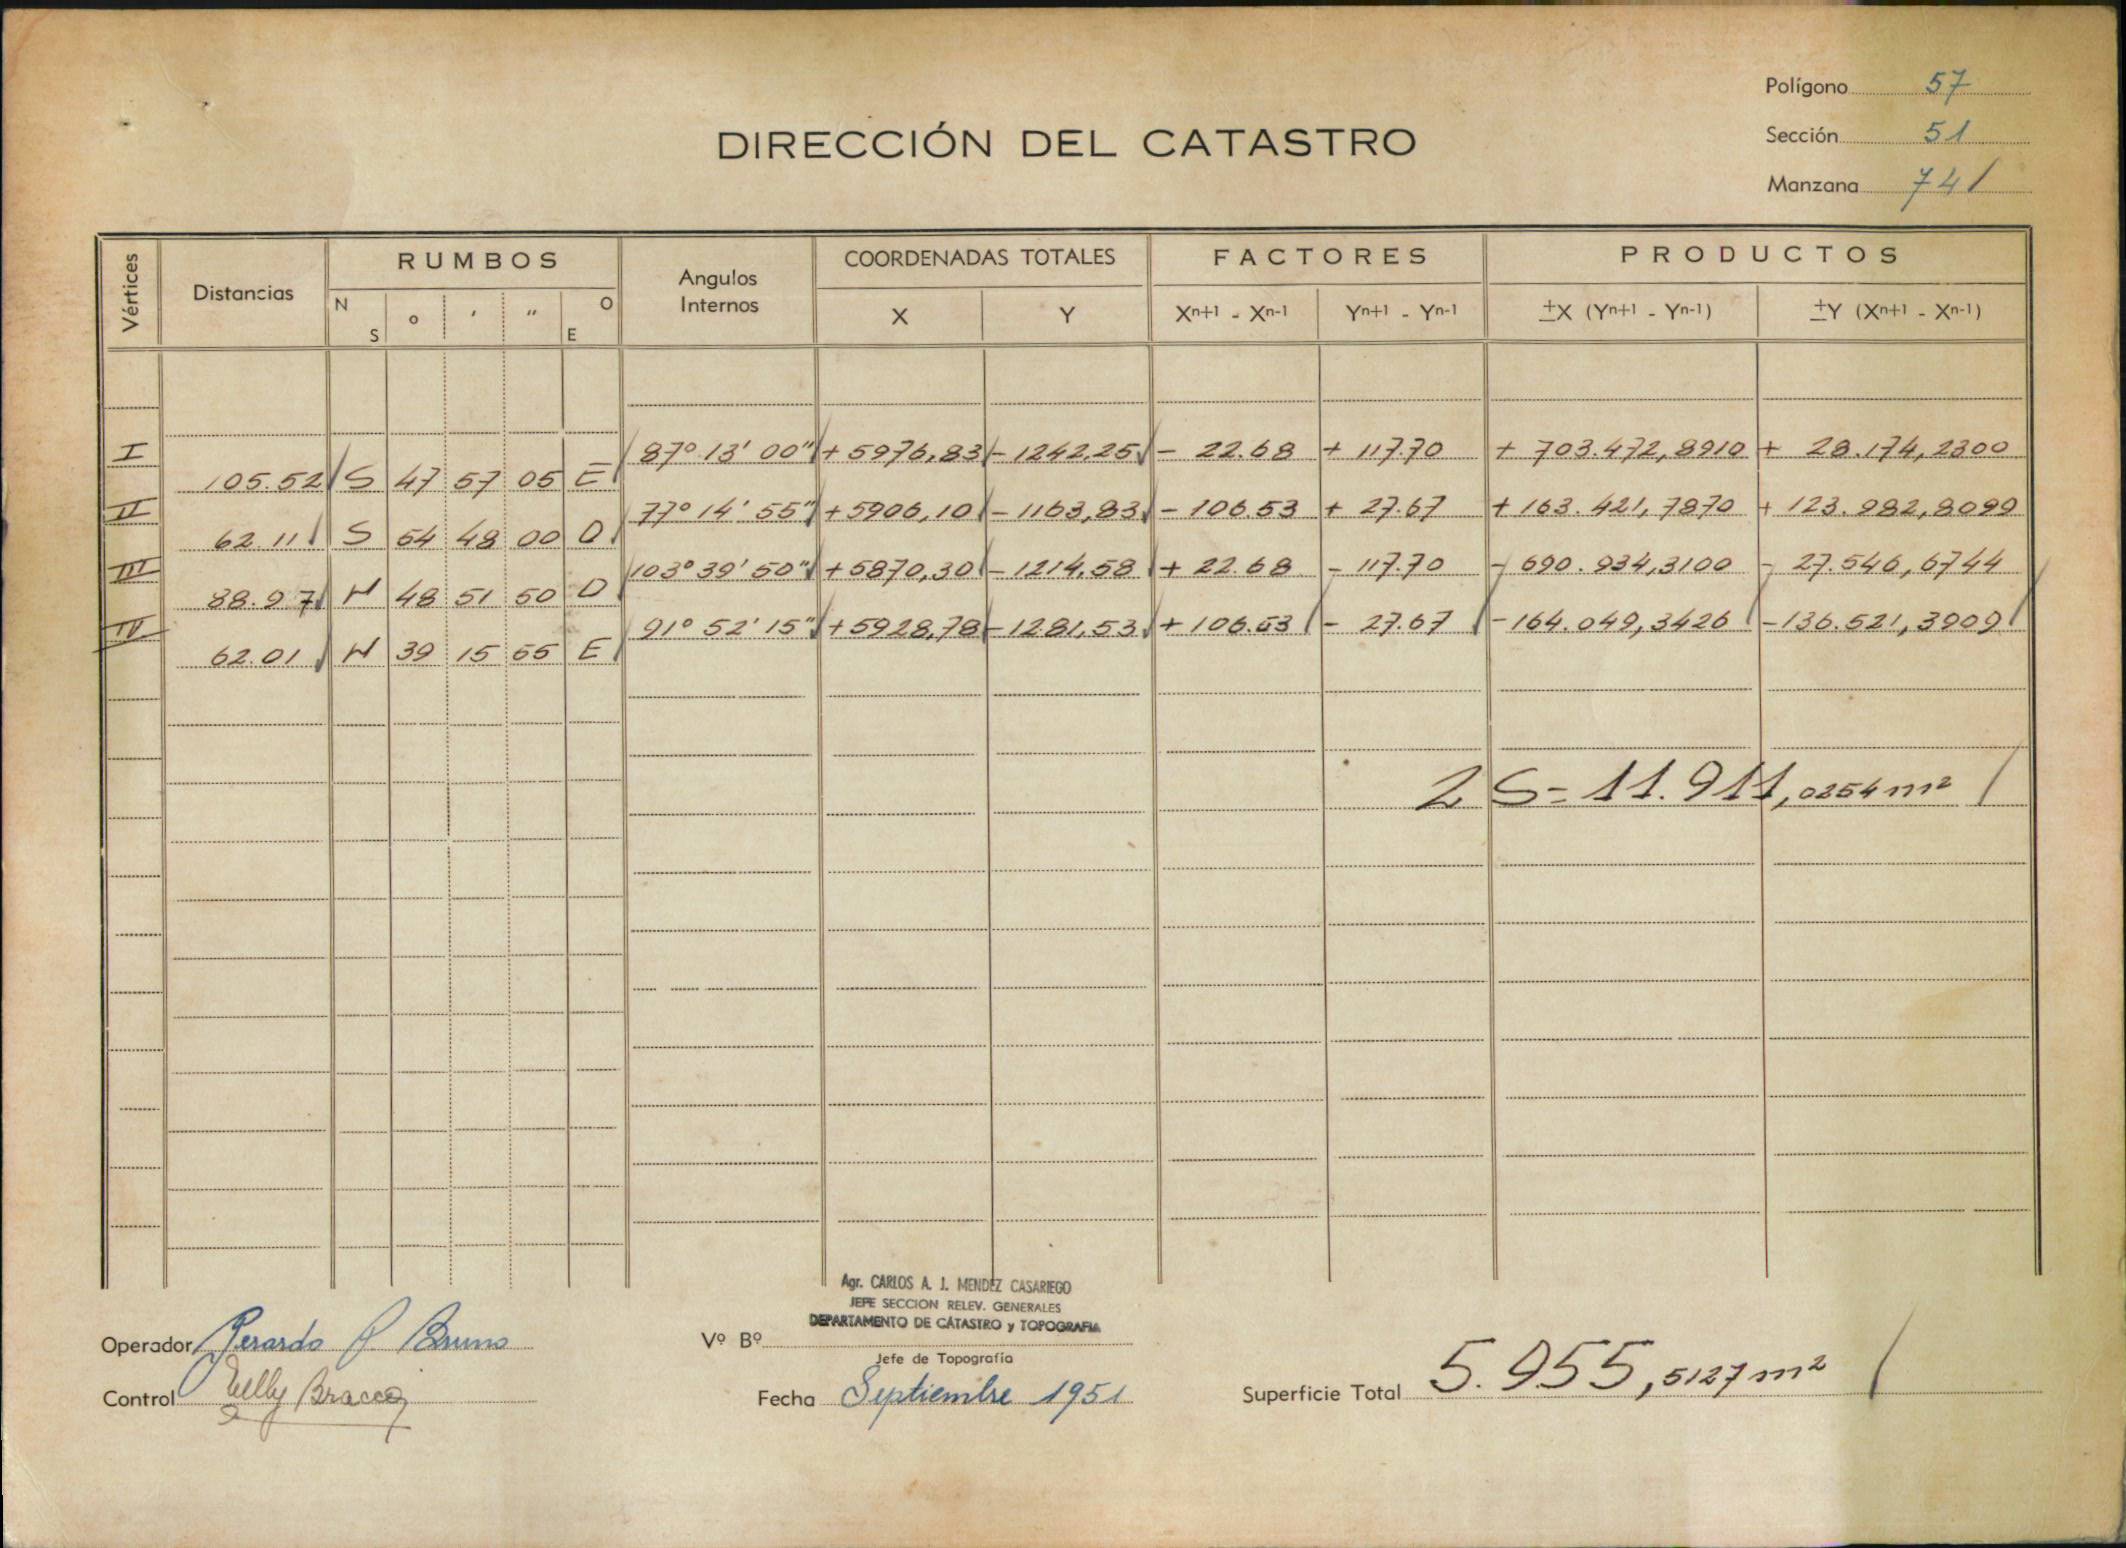 Polígono 57
DIRECCIÓN DEL CATASTRO
Sección 51
Manzana 741
Vértices Distancias RUMBOS Angulos Internos COORDENADAS TOTALES FACTORES PRODUCTOS
N S ° ' " O E X Y Xn+1 - Xn-1 Yn+1 - Yn-1 ±X (Yn+1 - Yn-1) ±Y (Xn+1 - Xn-1)
I 87° 13' 00" +5976,83 -1242.25 - 22.68 + 117.70 + 703.472,8910 + 28.174,2300
105.52 S 47 57 05 E
II 77° 14' 55" +5906,10 -1163,83 - 106.53 + 27.67 + 163.421,7870 + 123.982,8099
62.11 S 54 48 00 O
III 103° 39' 50" +5870,30 -1214,58 + 22.68 - 117.70 - 690.934,3100 - 27.546,6744
88.97 N 48 51 50 O
IV 91° 52' 15" +5928,78 -1281,53 + 106.53 - 27.67 -164.049,3426 -136.521,3909
62.01 N 39 15 55 E
2 S = 11.911,0254 m²
Agr. CARLOS A. J. MENDEZ CASARIEGO
JEFE SECCION RELEV. GENERALES
DEPARTAMENTO DE CATASTRO y TOPOGRAFIA
Operador Gerardo P. Bruno Vº Bº
Jefe de Topografía
Control Nelly Bracco Fecha Septiembre 1951 Superficie Total 5.955,5127 m²